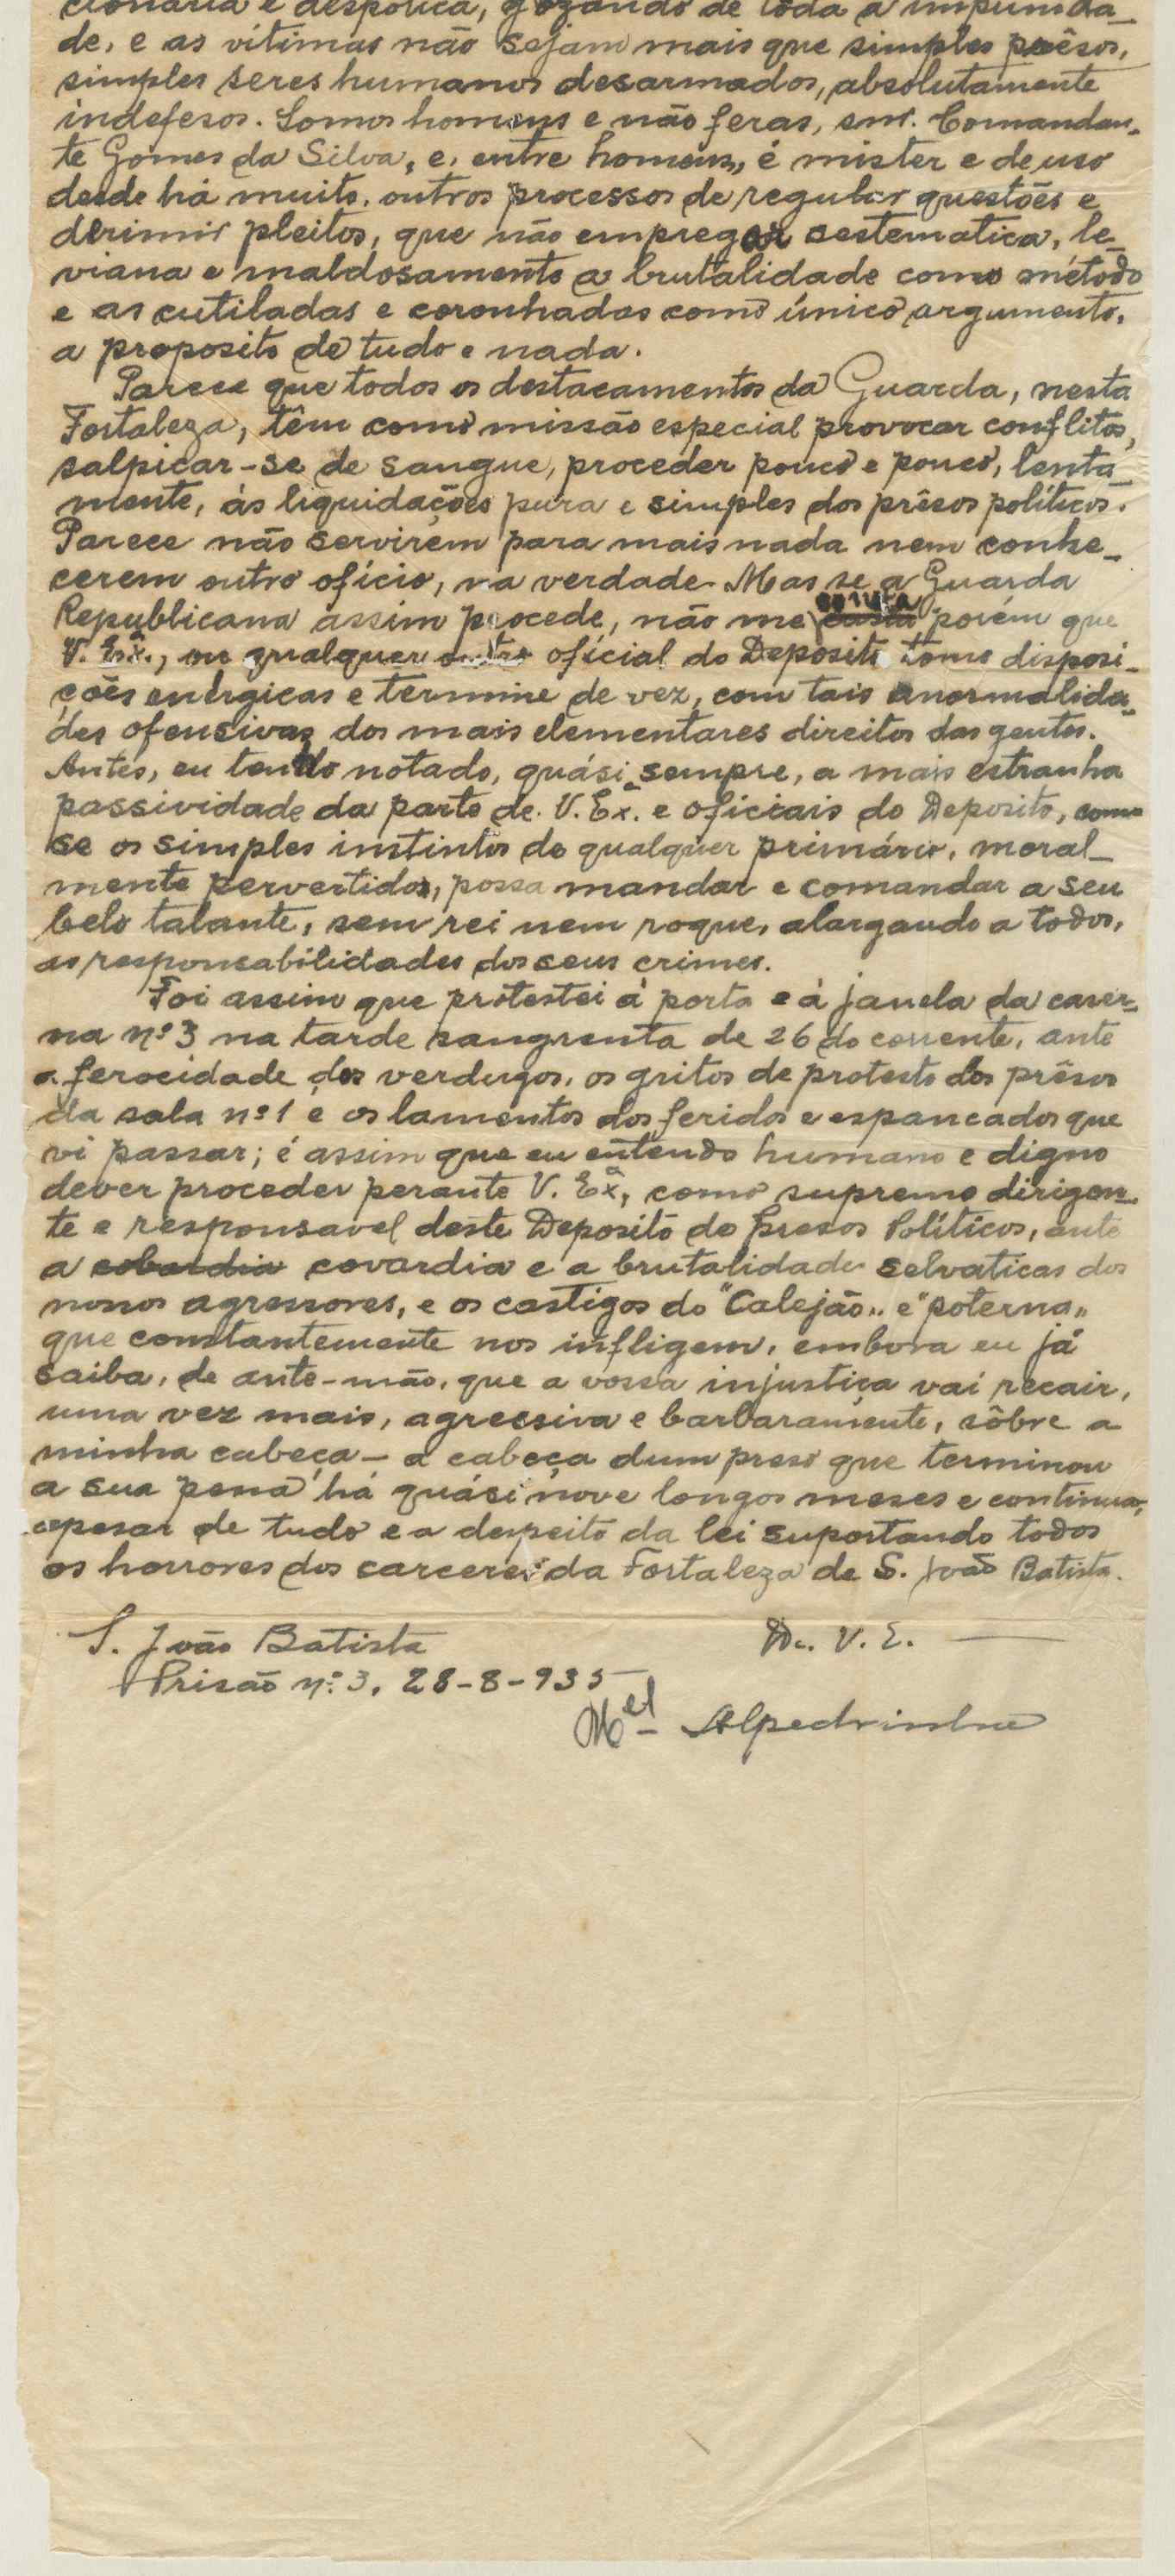 cionária e despótica, gozando de toda a impunida_
de, e as vítimas não sejam mais que simples prêsos,
simples seres humanos desarmados, absolutamente
indefesos. Somos homens e não feras, snr. Comandan-
te Gomes da Silva, e, entre homens, é mister e de uso
desde há muito, outros processos de regular questões e
derimir pleitos, que não empregar sestematica, le_
viana e maldosamente a brutalidade como método
e as cutiladas e coronhadas como único argumento,
a proposito de tudo e nada.
Parece que todos os destacamentos da Guarda, nesta
Fortaleza, têm como missão especial provocar conflitos,
salpicar-se de sangue, proceder pouco e pouco, lenta_
mente, ás liquidações pura e simples dos prêsos políticos.
Parece não servirem para mais nada nem conhe_
cerem outro ofício, na verdade. Mas se a Guarda
Republicana assim procede, não me consta porém que
V. Exª., ou qualquer outro oficial do Deposito tome disposi_
ções enérgicas e termine de vez, com tais anormalida_
des ofensivas dos mais elementares direitos das gentes.
Antes, eu tendo notado, quási sempre, a mais estranha
passividade da parte de V. Exª. e oficiais do Deposito, como
se os simples instintos de qualquer primário, moral_
mente pervertidos, possa mandar e comandar a seu
belo talante, sem rei nem roque, alargando a todos,
as responsabilidades dos seus crimes.
Foi assim que protestei á porta e á janela da caser_
na nº 3 na tarde sangrenta de 26 do corrente, ante
a ferocidade dos verdugos, os gritos de protesto dos prêsos
da sala nº 1 e os lamentos dos feridos e espancados que
vi passar; é assim que eu entendo humano e digno
dever proceder perante V. Exª, como supremo dirigen_
te e responsavel deste Deposito de Presos Políticos, ante
a cobardia covardia e a brutalidade selvaticas dos
nossos agressores, e os castigos do "Calejão" e "poterna"
que constantemente nos infligem, embora eu já
saiba, de ante-mão, que a vossa injustiça vai recair,
uma vez mais, agressiva e barbaramente, sôbre a
minha cabeça — a cabeça dum preso que terminou
a sua pena há quási nove longos meses e continua,
apesar de tudo e a despeito da lei suportando todos
os horrores dos carceres da Fortaleza de S. João Batista.
S. João Batista
De. V. E. —
Prisão nº 3, 28-8-935
Mel Alpedrinha